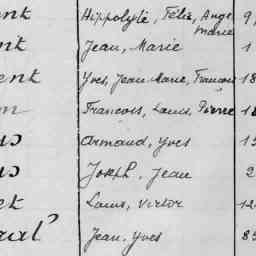 ent Hippolyte, Félix, Ange 9,
Marie
nt Jean, Marie 1
ent Yves, Jean Marie, François 18
François, Louis, Pierre 18
us Armand, Yves 15
us Joseph, Jean 2
et Louis, Victor 12
Jean, Yves 85